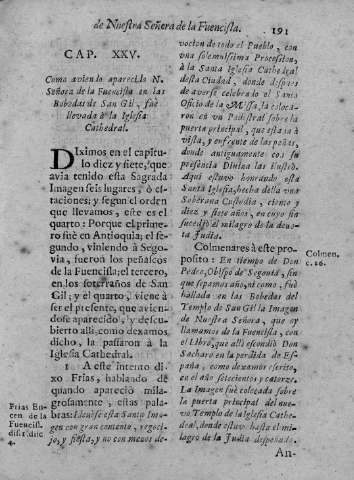 de Nuestra Señora de la Fuencisla. 191
CAP. XXV.
Como aviendo aparecido N.
Señora de la Fuencisla en las
Bobedas de San Gil, fuè
llevada à la Iglesia
Cathedral.
DIximos en el capitu-
lo diez y siete, que
avia tenido esta Sagrada
Imagen seis lugares, ò es-
taciones; y segun el orden
que llevamos, este es el
quarto: Porque el prime-
ro fuè en Antioquia; el se-
gundo, viniendo à Sego-
via, fueron los peñascos
de la Fuencisla; el tercero,
en los soterraños de San
Gil; y el quarto, viene à
ser el presente, que avien-
dose aparecido, y descu-
bierto alli, como dexamos
dicho, la passaron à la
Iglesia Cathedral.
1 A este intento di-
xo Frias, hablando de
quando apareciò mila-
grosamente, estas pala-
bras: Llevòse esta Santa Ima-
gen con gran contento, regoci-
jo, y fiesta, y no con menos de-
Frias En
cen. de la
Fuencisl.
4.
vocion de todo el Pueblo, con
vna solemnissima Procession,
à la Santa Iglesia Cathedral
desta Ciudad, donde despues
de averse celebrado el Santo
Oficio de la Missa, la coloca-
ron en vn Padistral sobre la
puerta principal, que està à
vista, y enfrente de las peñas,
donde antiguamente con su
presencia Divina las ilustrò.
Aqui estuvo honrando esta
Santa Iglesia, hecha della vna
Soberana Custodia, ciento y
diez y siete años, en cuyo fin
sucediò el milagro de la devo-
ta Judia.
Colmenares à este pro-
posito: En tiempo de Don
Pedro, Obispo de Segovia, sin
que sepamos año, ni como, fuè
hallada en las Bobedas del
Templo de San Gil la Imagen
de Nuestra Señora, que oy
llamamos de la Fuencisla, con
el Libro, que alli escondiò Don
Sacharo en la perdida de Es-
paña, como dexamos escrito,
en el año setecientos y catorze.
La Imagen fuè colocada sobre
la puerta principal del nue-
vo Templo de la Iglesia Cathe-
dral, donde estuvo hasta el mi-
lagro de la Judia despeñada.
Colmen.
c. 16.
An-